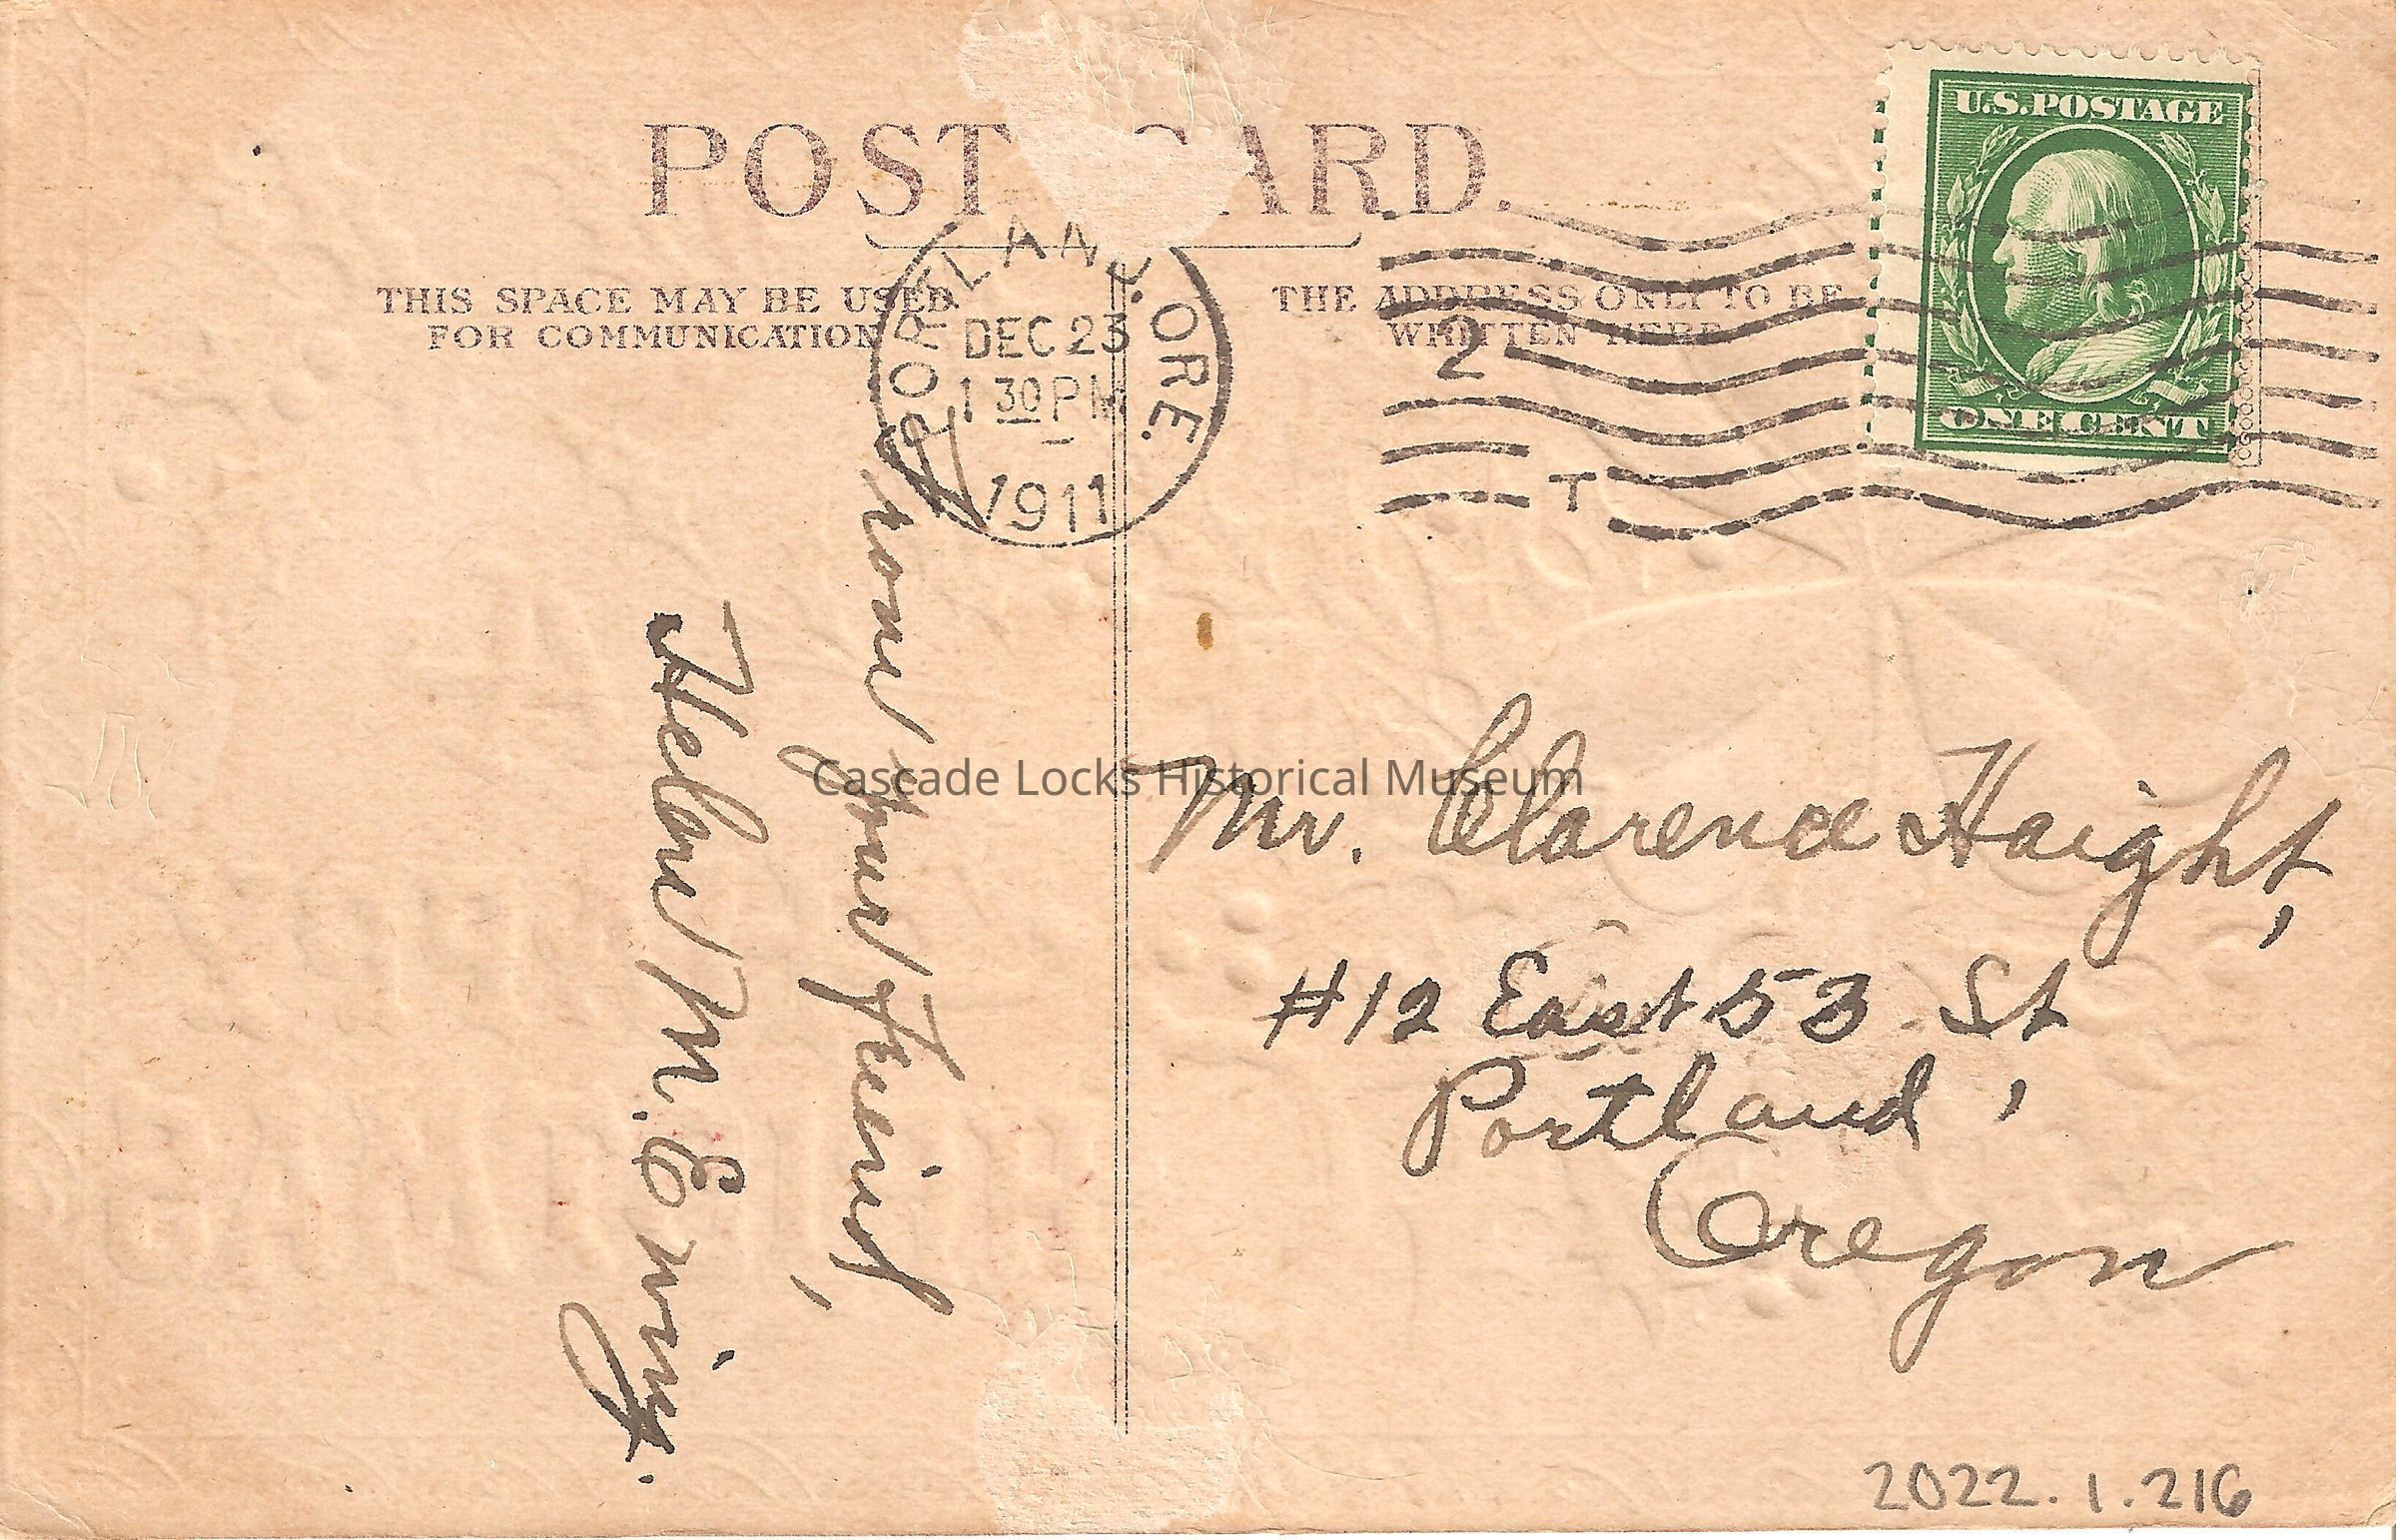 POST CARD.
THIS SPACE MAY BE USED
FOR COMMUNICATION
THE ADDRESS ONLY TO BE
WRITTEN HERE
PORTLAND, ORE.
DEC 23
1 30 PM
1911
2
T
U.S. POSTAGE
ONE CENT
From your Freind,
Helen M. Ewing.
Cascade Locks Historical Museum
Mr. Clarence Haight,
#12 East 53 St
Portland,
Oregon
2022.1.216